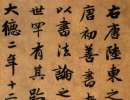 右唐陸柬之
唐初善書
以書法論之
世罕有其
大德二年十二